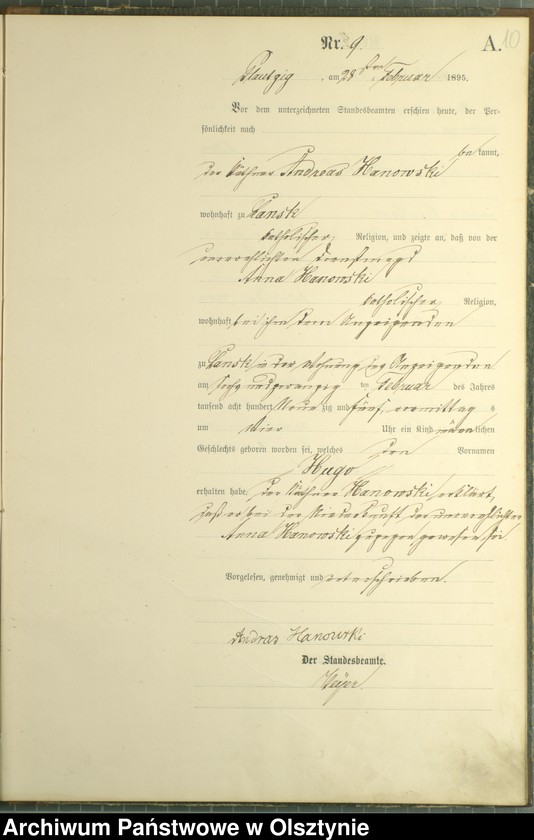 Nr. 9.
A. 10
Plautzig, am 28ten Februar 1895.
Vor dem unterzeichneten Standesbeamten erschien heute, der Per-
sönlichkeit nach
bekannt,
der Käthner Andreas Hanowski
wohnhaft zu Lansk
katholischer Religion, und zeigte an, daß von der
unverehelichten Dienstmagd
Anna Hanowski
katholischer Religion,
wohnhaft bei ihm dem Anzeigenden
zu Lansk in der Wohnung des Anzeigenden
am sechs und zwanzigten Februar des Jahres
tausend acht hundert Neunzig und fünf vormittags
um vier Uhr ein Kind männlichen
Geschlechts geboren worden sei, welches den Vornamen
Hugo
erhalten habe. Der Käthner Hanowski erklärt,
daß er bei der Niederkunft der unverehelichten
Anna Hanowski zugegen gewesen sei.
Vorgelesen, genehmigt und unterschrieben.
Andras Hanowski
Der Standesbeamte.
Archiwum Państwowe w Olsztynie